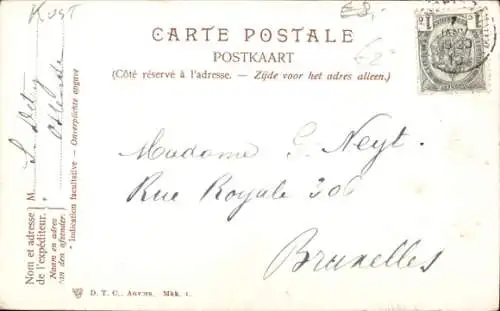 Kust
€8,-
CARTE POSTALE
POSTKAART
(Côté réservé à l'adresse. — Zijde voor het adres alleen.)
Madame G. Neyt.
Rue Royale 206
Bruxelles
Nom et adresse de l'expéditeur.
Naam en adres van den afzender.
M. S. Detry
Ostende
* Indication facultative — Onverplichte opgave
D. T. C., Anvers. Mkk. 1.